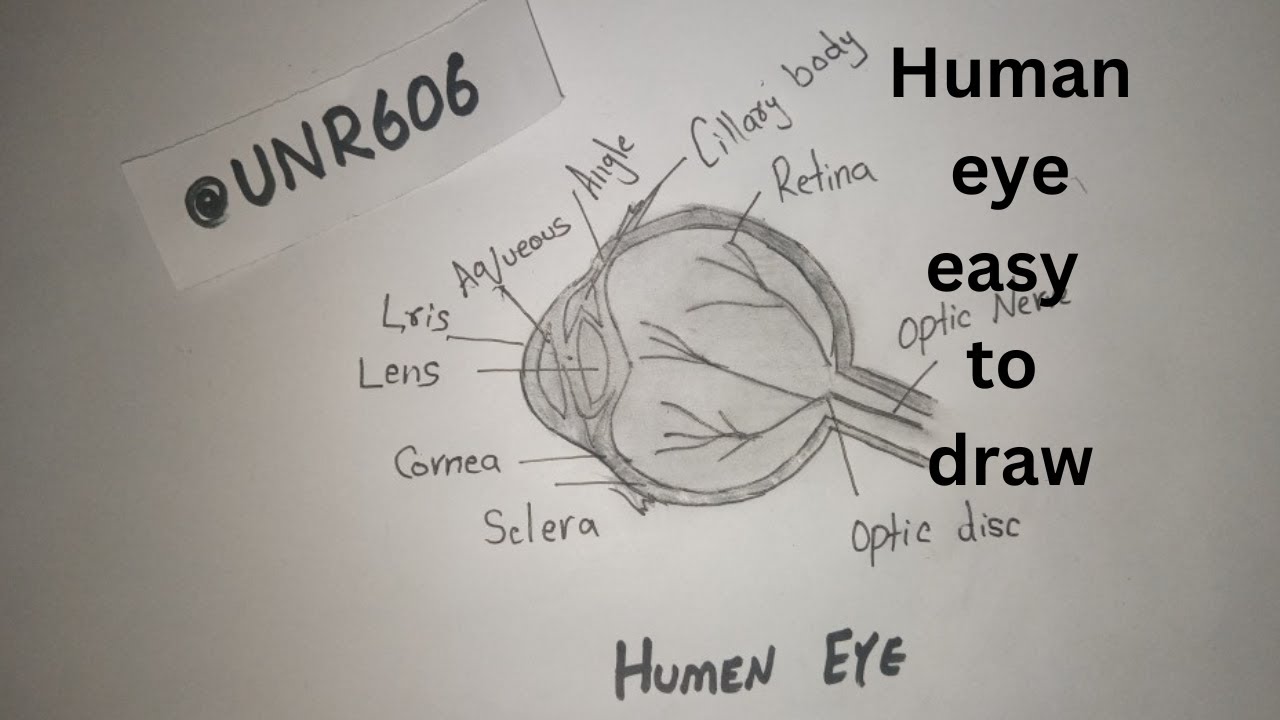 @UNR606
Human
eye
easy
to
draw
Cillary body
Angle
Retina
Aqueous
Lris
Lens
Optic Nerve
Cornea
Sclera
Optic disc
HUMEN EYE